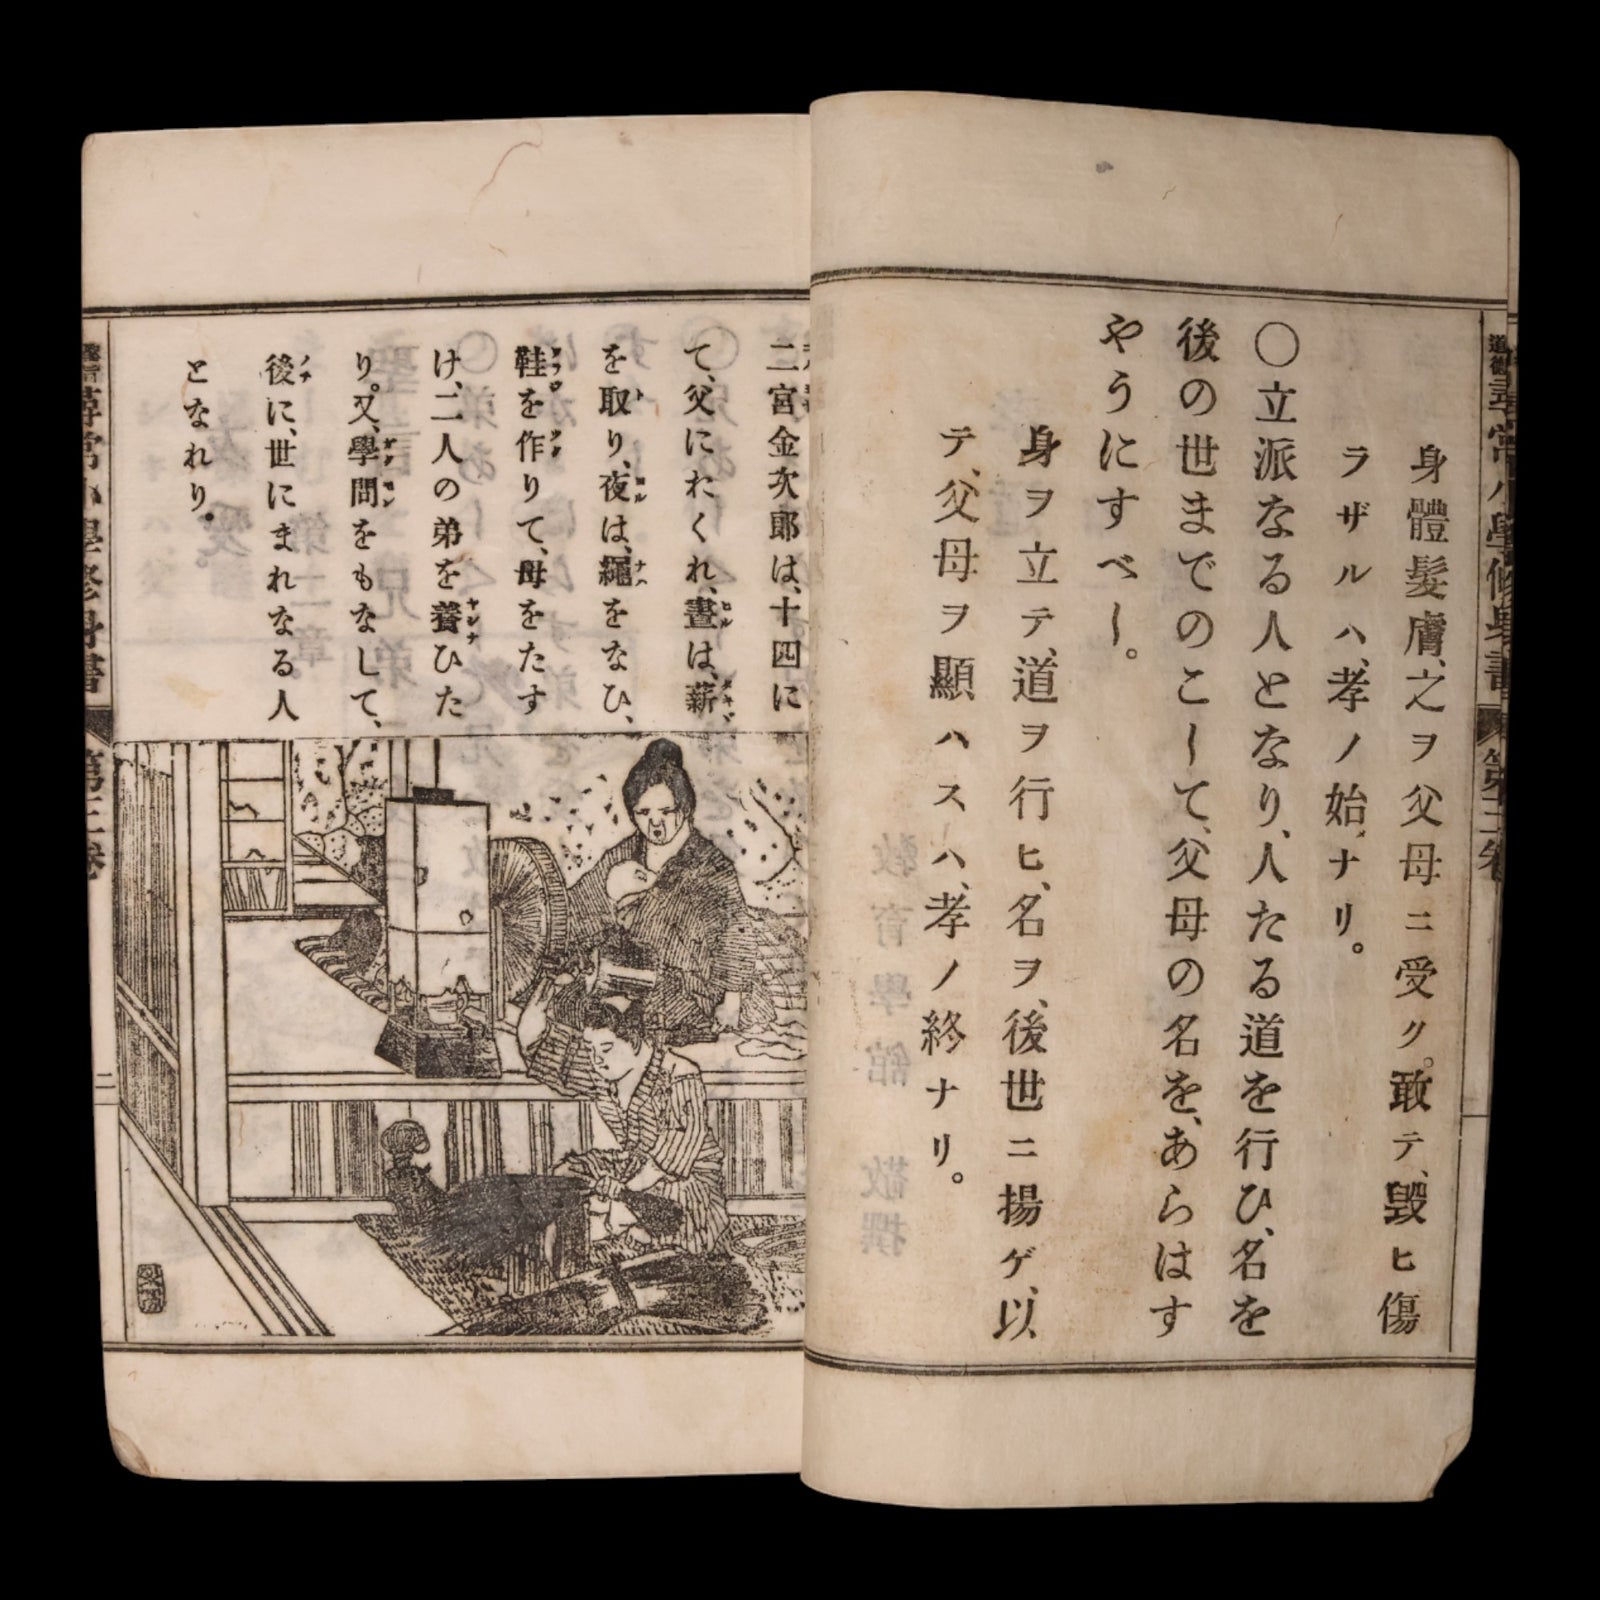 身體髮膚、之ヲ父母ニ受ク。敢テ、毀ヒ傷
ラザルハ、孝ノ始ナリ。
〇立派なる人となり、人たる道を行ひ、名を
後の世までのこして、父母の名を、あらはす
やうにすべし。
身ヲ立テ、道ヲ行ヒ、名ヲ、後世ニ揚ゲ、以
テ、父母ヲ顯ハスハ、孝ノ終ナリ。
尋常小學修身書 第三卷
二宮金次郎は、十四に
て、父にわくれ、晝は、薪
を取り、夜は、繩をなひ、
鞋を作りて、母をたす
け、二人の弟を養ひた
り。又、學問をもなして、
後に、世にまれなる人
となれり。
尋常小學修身書 第三卷 二